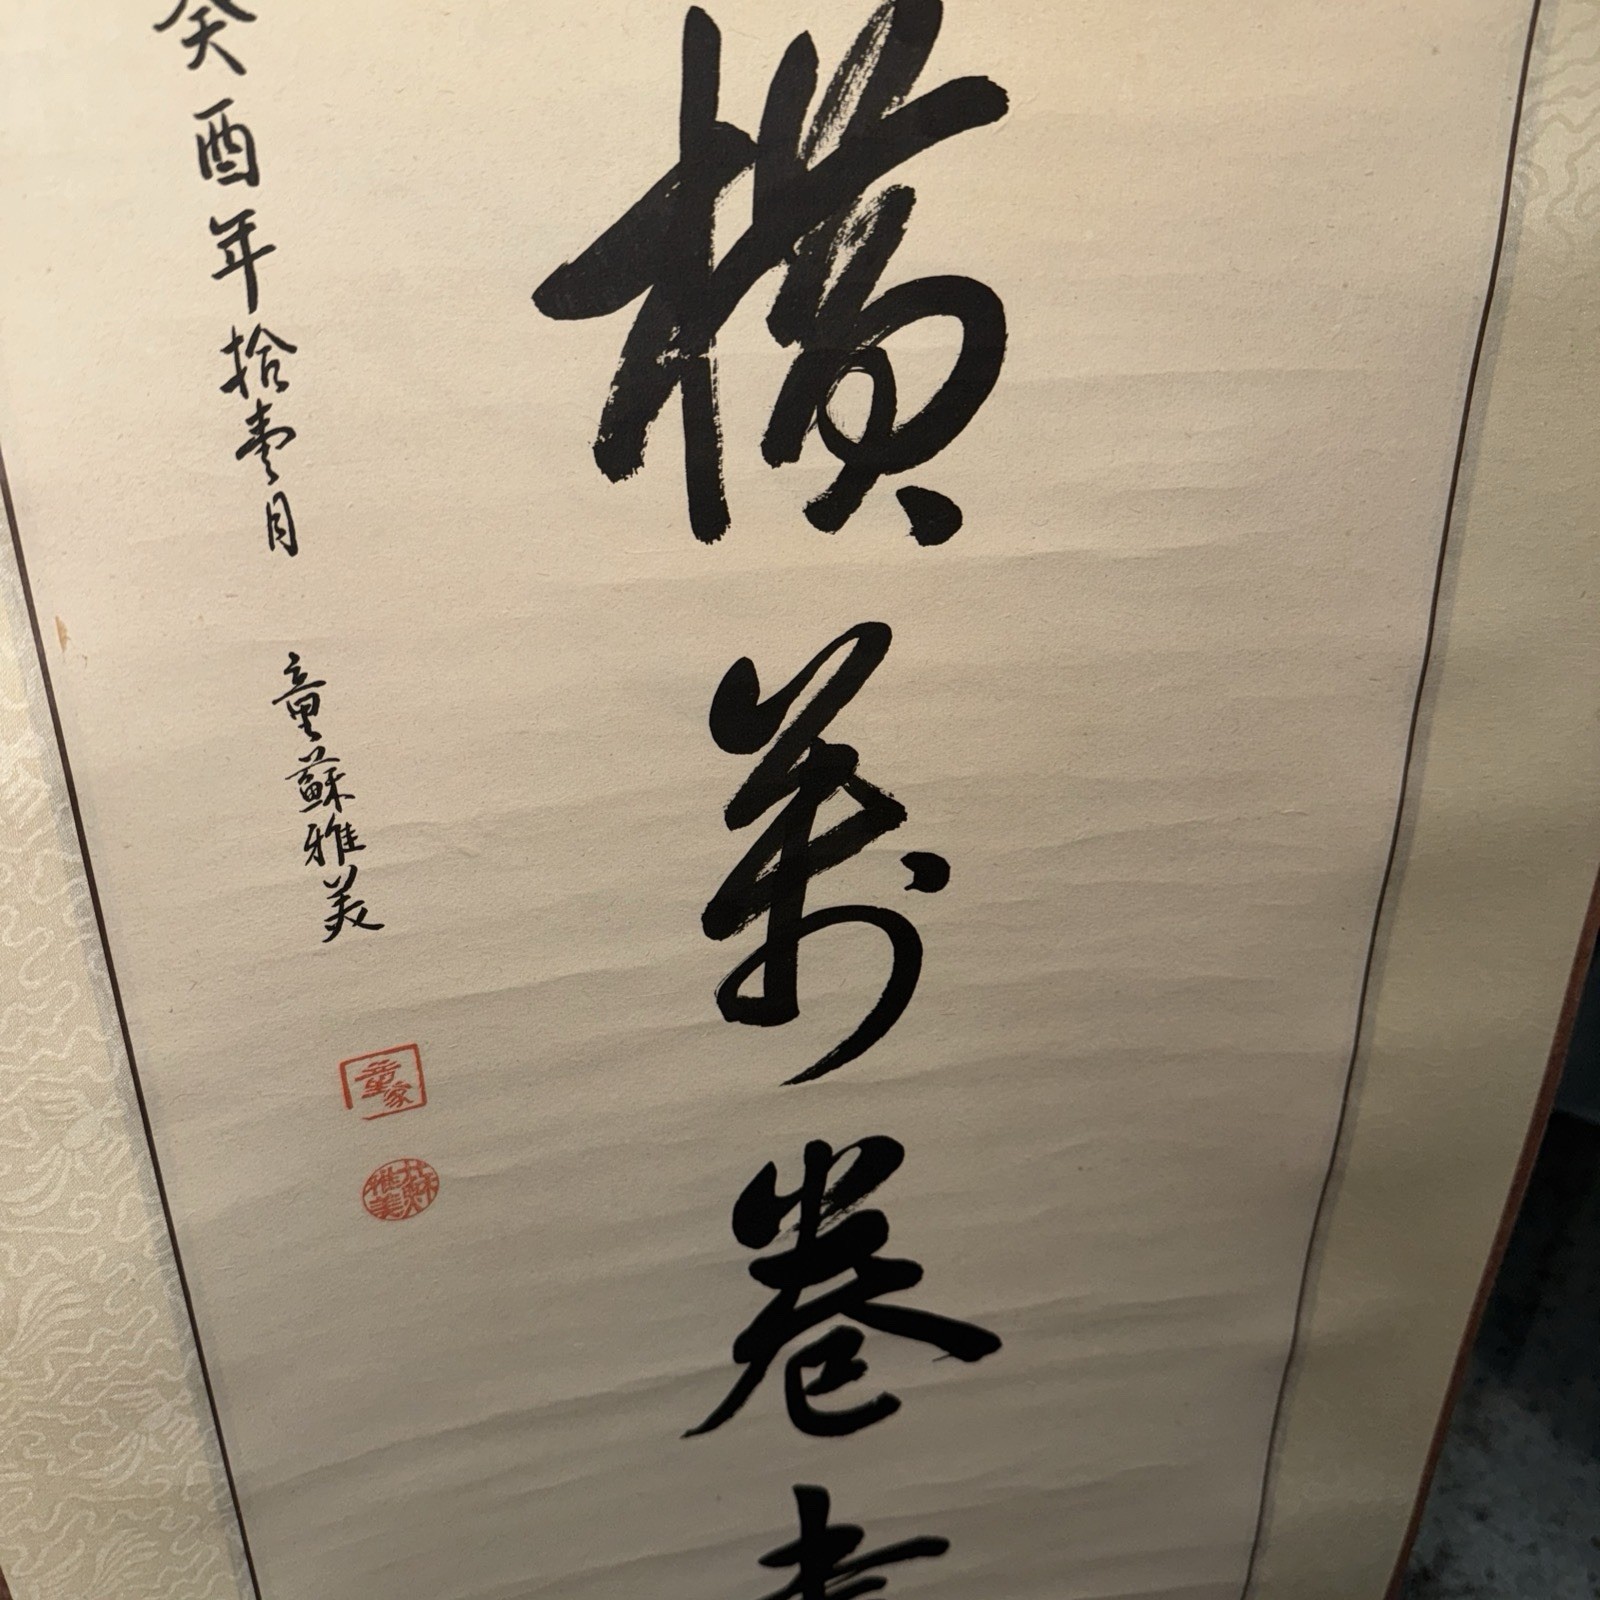 橫萬卷書
癸酉年拾壹月
童蘇雅美
童家
蘇雅美